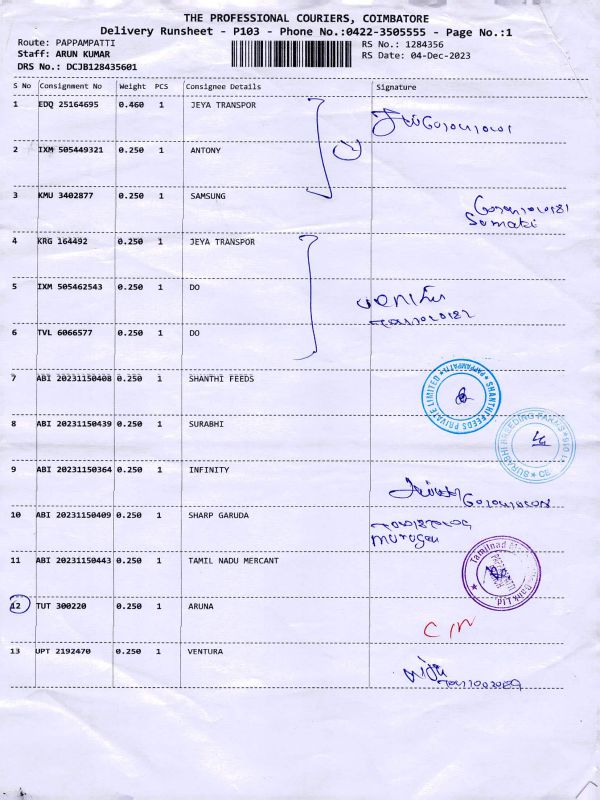 THE PROFESSIONAL COURIERS, COIMBATORE
Delivery Runsheet - P103 - Phone No.:0422-3505555 - Page No.:1
Route: PAPPAMPATTI
RS No.: 1284356
Staff: ARUN KUMAR
RS Date: 04-Dec-2023
DRS No.: DCJB128435601
S No Consignment No Weight PCS Consignee Details Signature
1 EDQ 25164695 0.460 1 JEYA TRANSPOR
2 IXM 505449321 0.250 1 ANTONY
3 KMU 3402877 0.250 1 SAMSUNG
Sumati
4 KRG 164492 0.250 1 JEYA TRANSPOR
5 IXM 505462543 0.250 1 DO
6 TVL 6066577 0.250 1 DO
7 ABI 20231150408 0.250 1 SHANTHI FEEDS
SHANTHI FEEDS PRIVATE LIMITED * PAPPAMPATTI *
8 ABI 20231150439 0.250 1 SURABHI
SURABHI BREEDING FARMS
9 ABI 20231150364 0.250 1 INFINITY
10 ABI 20231150409 0.250 1 SHARP GARUDA
Murugan
11 ABI 20231150443 0.250 1 TAMIL NADU MERCANT
Tamilnad Bank Ltd.
12 TUT 300220 0.250 1 ARUNA
13 UPT 2192470 0.250 1 VENTURA